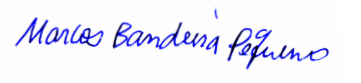 Marcos Bandeira Pequeno